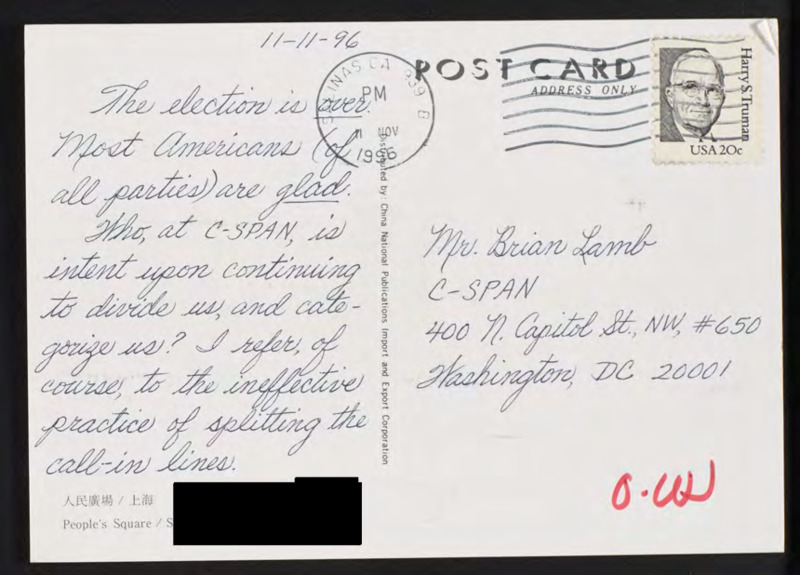 11-11-96
The election is over.
Most Americans (of
all parties) are glad.
Who, at C-SPAN, is
intent upon continuing
to divide us, and cate-
gorize us? I refer, of
course, to the ineffective
practice of splitting the
call-in lines.
人民廣場 / 上海
People's Square / S
Distributed by: China National Publications Import and Export Corporation
SALINAS CA 939
PM
11 NOV
1996
POST CARD
ADDRESS ONLY
Harry S. Truman
USA 20c
Mr. Brian Lamb
C-SPAN
400 N. Capitol St., NW, #650
Washington, DC 20001